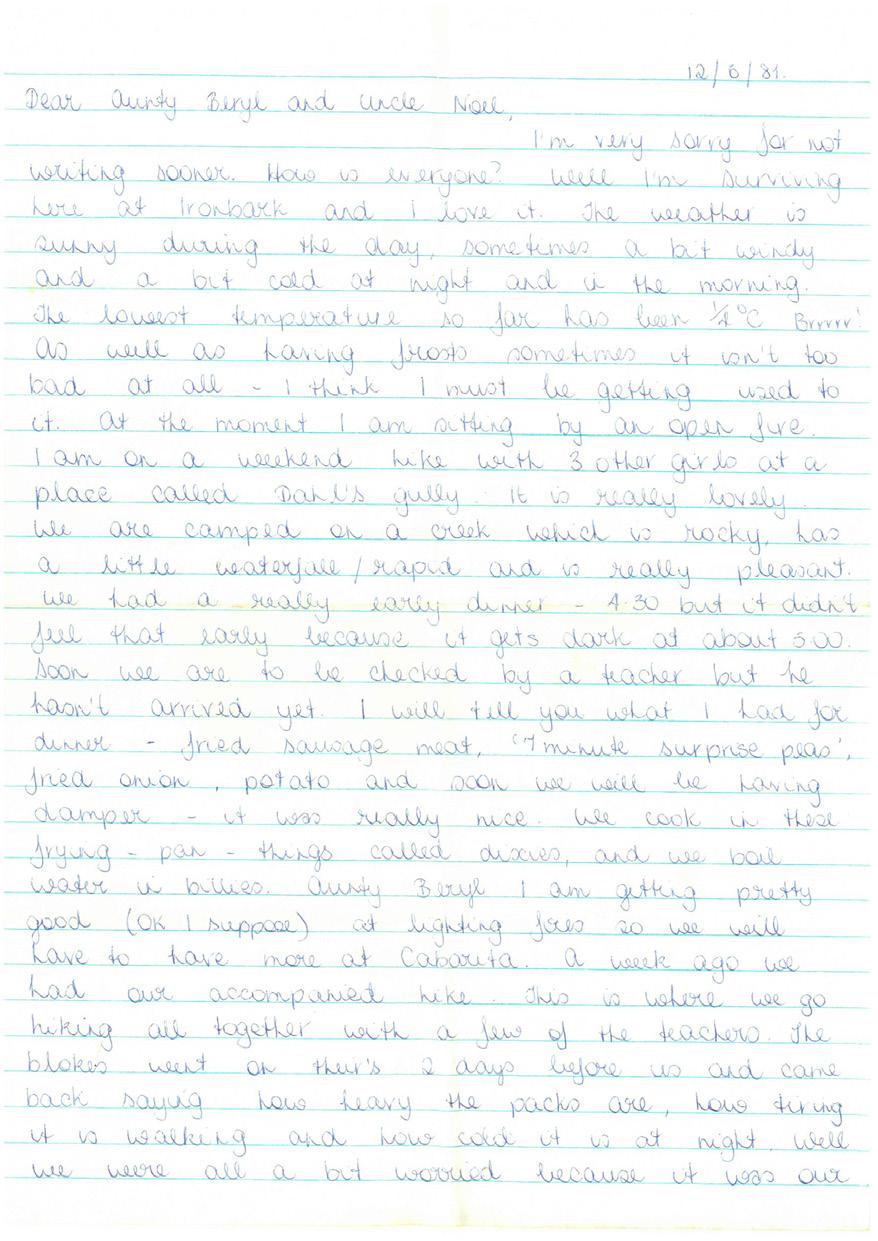 12/6/81.
Dear Aunty Beryl and Uncle Noel,
I'm very sorry for not
writing sooner. How is everyone? Well I'm surviving
here at Ironbark and I love it. The weather is
sunny during the day, sometimes a bit windy
and a bit cold at night and in the morning.
The lowest temperature so far has been 1/4°C Brrrrr!
As well as having frosts sometimes it isn't too
bad at all - I think I must be getting used to
it. At the moment I am sitting by an open fire.
I am on a weekend hike with 3 other girls at a
place called Dahl's gully. It is really lovely.
We are camped on a creek which is rocky, has
a little waterfall/rapid and is really pleasant.
We had a really early dinner - 4.30 but it didn't
feel that early because it gets dark at about 5.00.
Soon we are to be checked by a teacher but he
hasn't arrived yet. I will tell you what I had for
dinner - fried sausage meat, '7 minute surprise peas',
fried onion, potato and soon we will be having
damper - it was really nice. We cook in these
frying - pan - things called dixies, and we boil
water in billies. Aunty Beryl I am getting pretty
good (OK I suppose) at lighting fires so we will
have to have more at Cabarita. A week ago we
had our accompanied hike. This is where we go
hiking all together with a few of the teachers. The
blokes went on their's 2 days before us and came
back saying how heavy the packs are, how tiring
it is walking and how cold it is at night. Well
we were all a bit worried because it was our